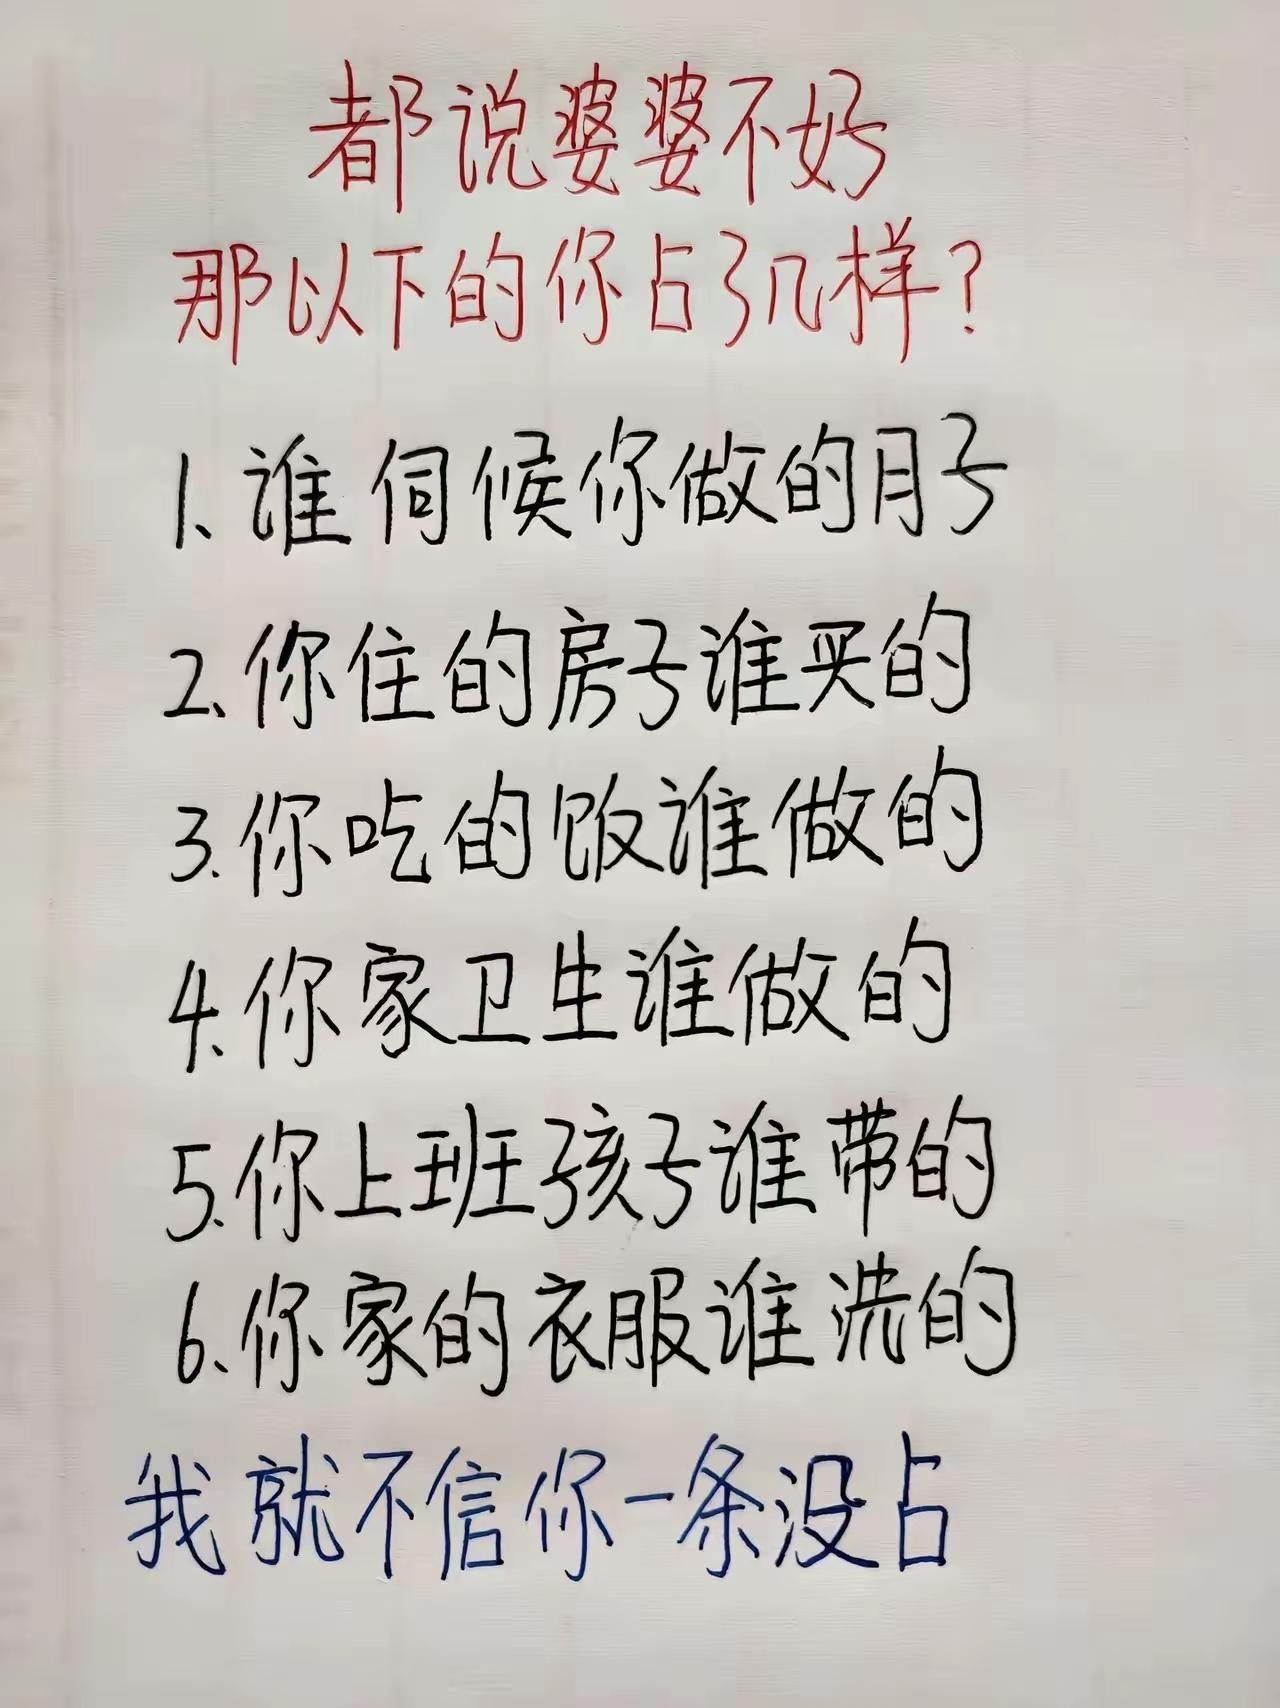 都说婆婆不好
那以下的你占了几样?
1、谁伺候你做的月子
2、你住的房子谁买的
3.你吃的饭谁做的
4、你家卫生谁做的
5、你上班孩子谁带的
6、你家的衣服谁洗的
我就不信你一条没占